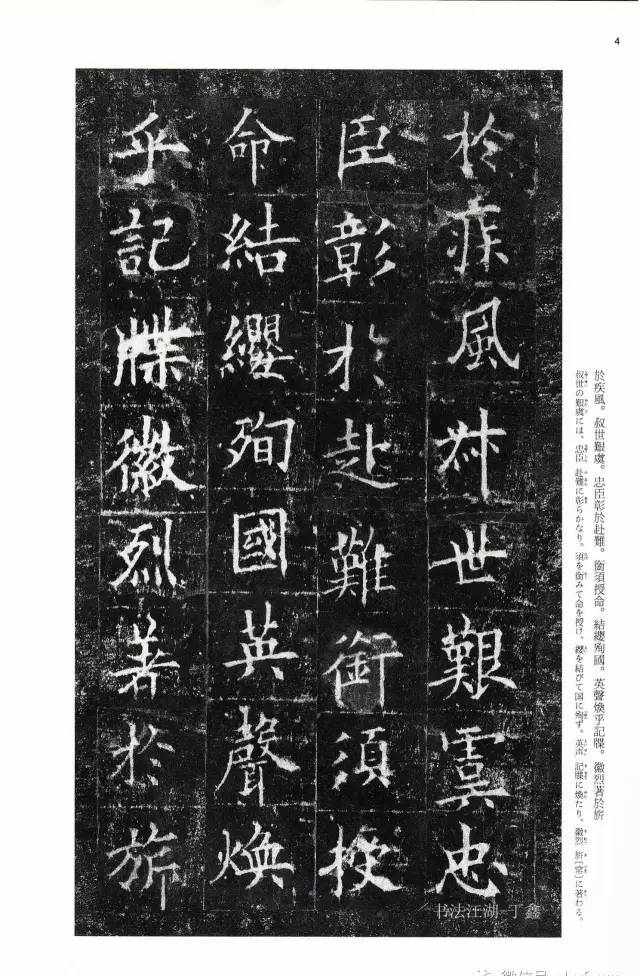 4
於疾風叔世艱虞忠
臣彰於赴難銜須授
命結纓殉國英聲煥
乎記牒徽烈著於旂
於疾風。叔世艱虞。忠臣彰於赴難。銜須授命。結纓殉國。英聲煥乎記牒。徽烈著於旂
叔世の艱虞には、忠臣 赴難に彰らかなり。須を銜みて命を授け、纓を結びて国に殉ず。英声 記牒に煥たり、徽烈 旂〔常〕に著わる。
书法江湖 丁鑫